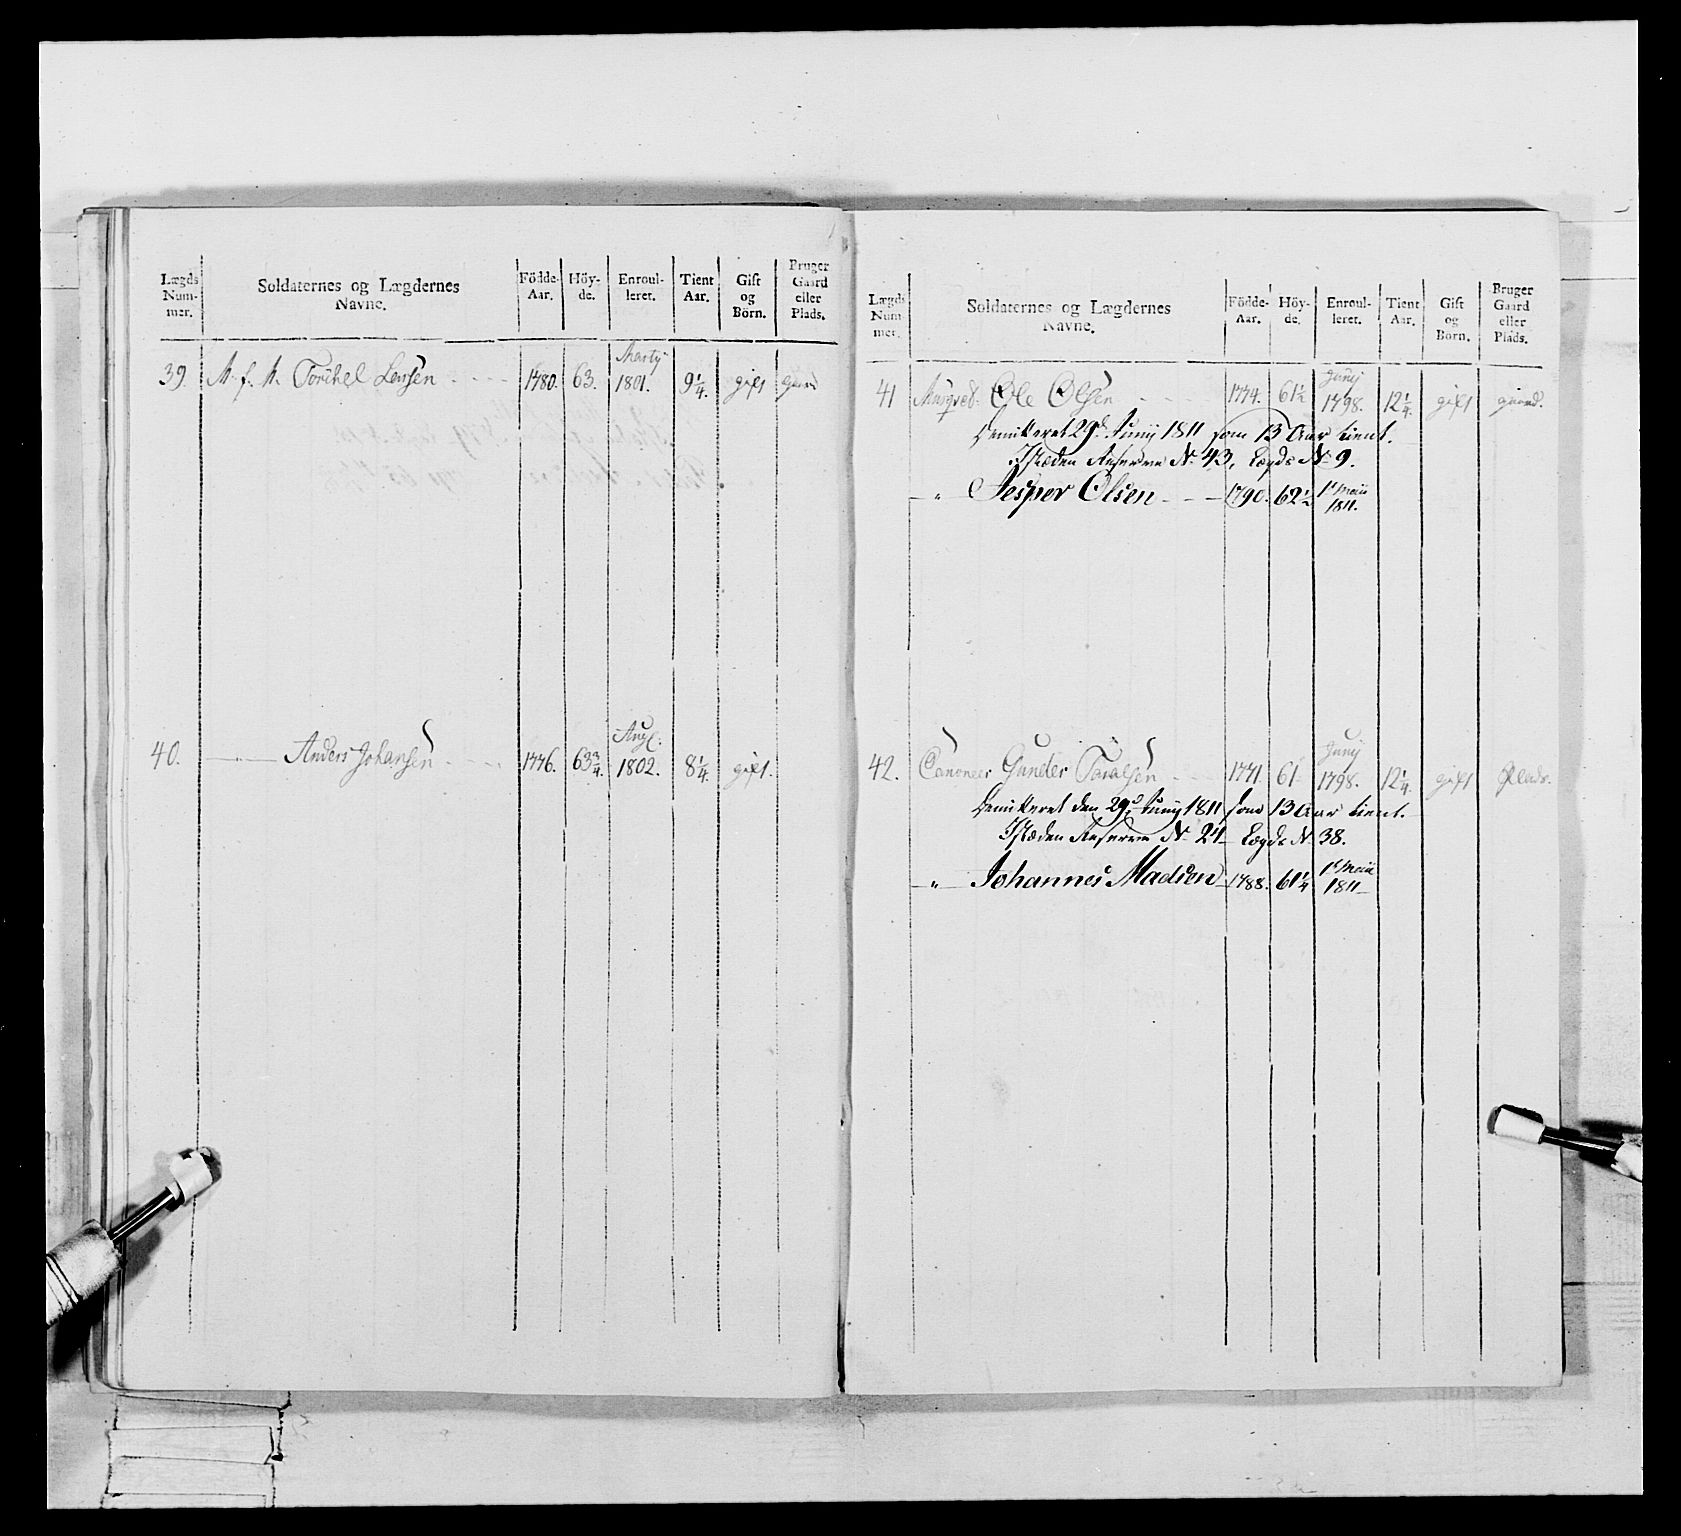 Lægds Num- mer. Soldaternes og Lægdernes Navne. Födde- Aar. Höy- de. Enroul- leret. Tient Aar. Gift og Börn. Bruger Gaard eller Plads.
Marty
39. M. f. M. Torchel Larsen 1780. 63. 1801. 9 1/4. gift gaard
Aug:
40. Anders Johansen 1776. 63 3/4. 1802. 8 1/4. gift.
Lægds Num- mer. Soldaternes og Lægdernes Navne. Födde- Aar. Höy- de. Enroul- leret. Tient Aar. Gift og Born. Bruger Gaard eller Plads.
Junij
41 Musqved. Ole Olsen 1774. 61 1/2 1798. 12 1/4. gift gaard.
Demitteret 29d Junij 1811 som 13 Aar tient.
I Stæden Reserven No 43, Lægds No 9.
1st Maii
—„— Jesper Olsen 1790. 62 1/2 1811.
Junij
42. Canoneer Gunder Taralsen 1771 61 1798. 12 1/4. gift Plads.
Demitteret den 29d Junij 1811 som 13 Aar tient.
I Stæden Reserven No 24 Lægds No 38.
1st Maii
—„— Johannes Madsen 1788. 61 1/4 1811